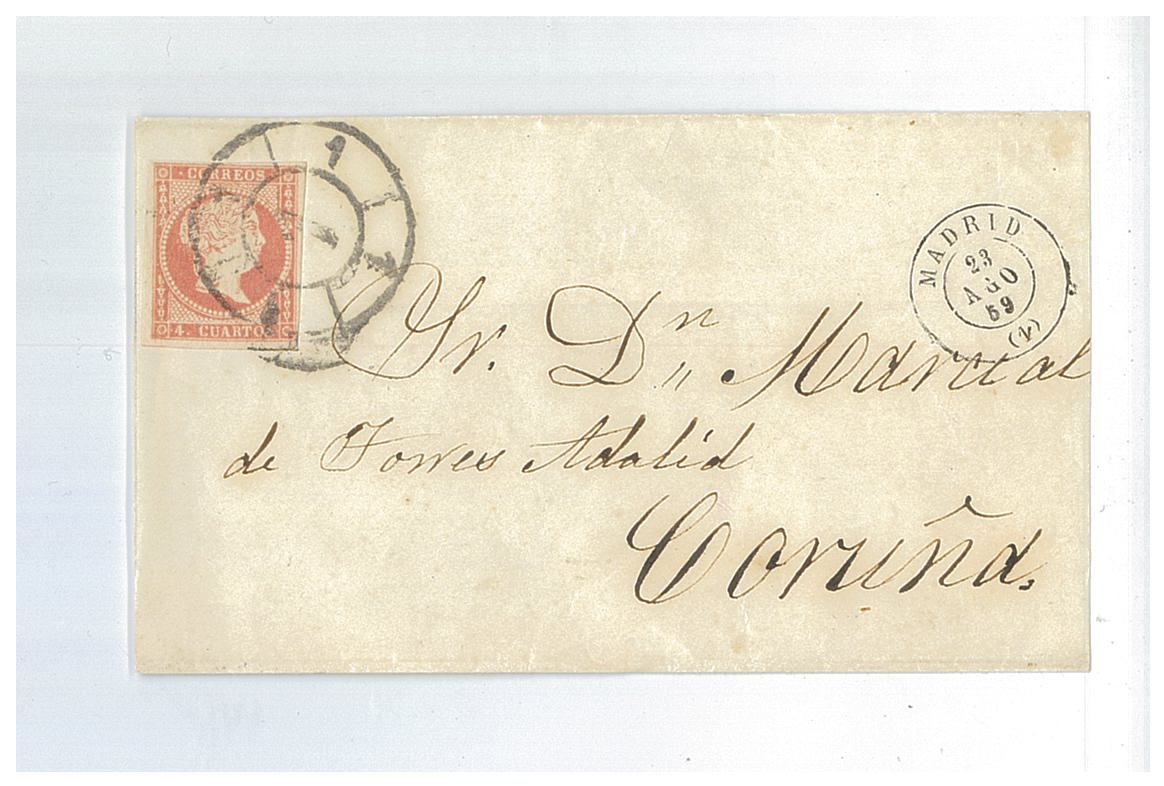 CORREOS
4. CUARTOS
1
1
1
MADRID
23
AGO
59
(1)
Sr. Dn Marcial
de Torres Adalid
Coruña.